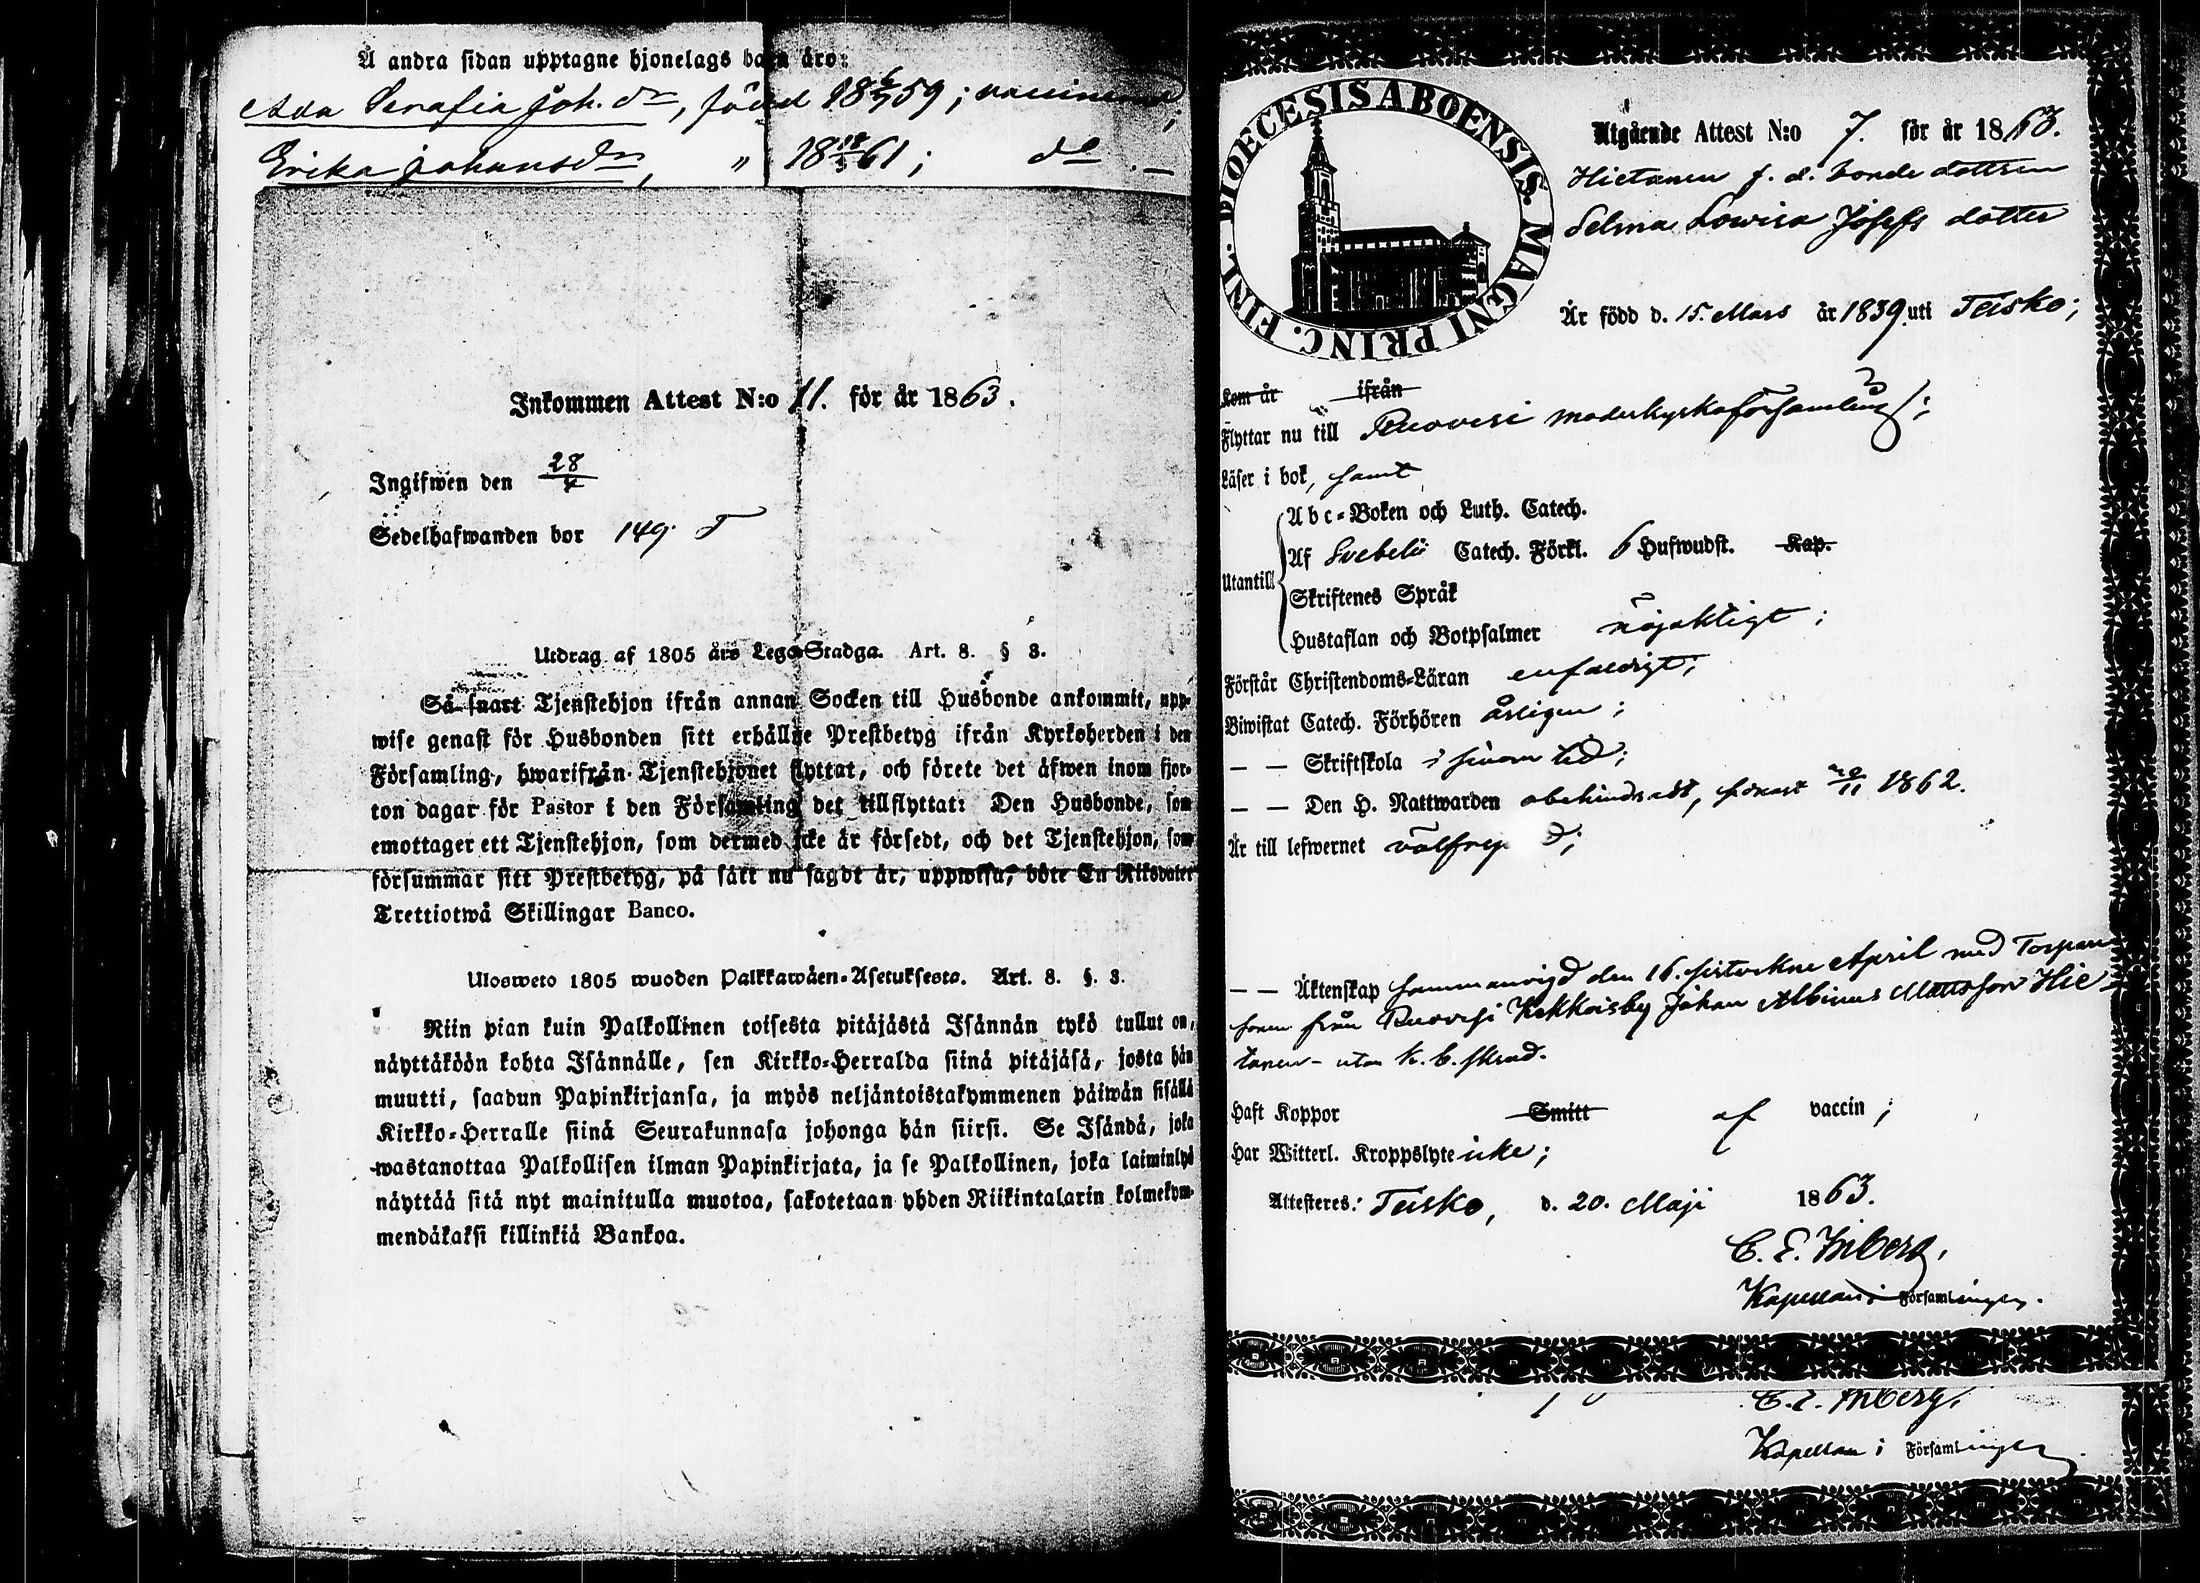 Å andra sidan upptagne hjonelags barn äro:
Ada Serafia Joh. dr, född 18 6/7 59; vaccinerad;
Erika Johansdr, " 18 12/3 61; do. —
Inkommen Attest N:o 11. för år 1863.
Ingifwen den 28/4
Sedelhafwanden bor 149. T
Utdrag af 1805 års Lego-Stadga. Art. 8. § 3.
Så snart Tjenstehjon ifrån annan Socken till Husbonde ankommit, upp-
wise genast för Husbonden sitt erhållne Prestbetyg ifrån Kyrkoherden i den
Församling, hwarifrån Tjenstehjonet flyttat, och förete det äfwen inom fjor-
ton dagar för Pastor i den Församling det tillflyttat: Den Husbonde, som
emottager ett Tjenstehjon, som dermed icke är försedt, och det Tjenstehjon, som
försummar sitt Prestbetyg, på sätt nu sagdt är, uppwisa, böte En Riksdaler
Trettiotwå Skillingar Banco.
Ulosweto 1805 wuoden Palkkawäen-Asetuksesta. Art. 8. §. 3.
Niin pian kuin Palkollinen toisesta pitäjästä Isännän tykö tullut on,
näyttäköön kohta Isännälle, sen Kirkko-Herralda siinä pitäjäsä, josta hän
muutti, saadun Papinkirjansa, ja myös neljäntoistakymmenen päiwän sisällä
Kirkko-Herralle siinä Seurakunnasa johonga hän siirsi. Se Isändä, joka
wastanottaa Palkollisen ilman Papinkirjata, ja se Palkollinen, joka laiminlyö
näyttää sitä nyt mainitulla muotoa, sakotetaan yhden Riikintalarin kolmekym-
mendäkaksi killinkiä Bankoa.
DIOECESIS ABOENSIS. MAGNI PRINC. FINL.
Utgående Attest N:o 7. för år 1863.
Hietanen f. d. bonde dottren
Selma Lowisa Josefs dotter
Är född d. 15. Mars år 1839. uti Teisko;
Kom år ifrån
Flyttar nu till Ruovesi moderkyrkoförsamling;
Läser i bok, samt
Utantill
Abc-Boken och Luth. Catech.
Af Svebelii Catech. Förkl. 6 Hufwudst. Kap.
Skriftenes Språk
Hustaflan och Botpsalmer nöjaktigt;
Förstår Christendoms-Läran enfaldigt;
Biwistat Catech. Förhören årligen;
— — Skriftskola i sinom tid;
— — Den H. Nattwarden obehindradt, senast /11 1862.
Är till lefwernet välfrejd;
— — Äktenskap sammanvigd den 16. sistvekne April med Torpare
sonen från Ruovesi Kekkoisby Johan Albinus Mattsson Hie
tanen - utan k. b. skrud.
Haft Koppor Smitt af vaccin;
Har Witterl. Kroppslyte icke;
Attesteres: Teisko, d. 20. Maji 1863.
C. E. Inberg,
Kapellan i Församlingen.
C. E. Inberg,
Kapellan i Församlingen.